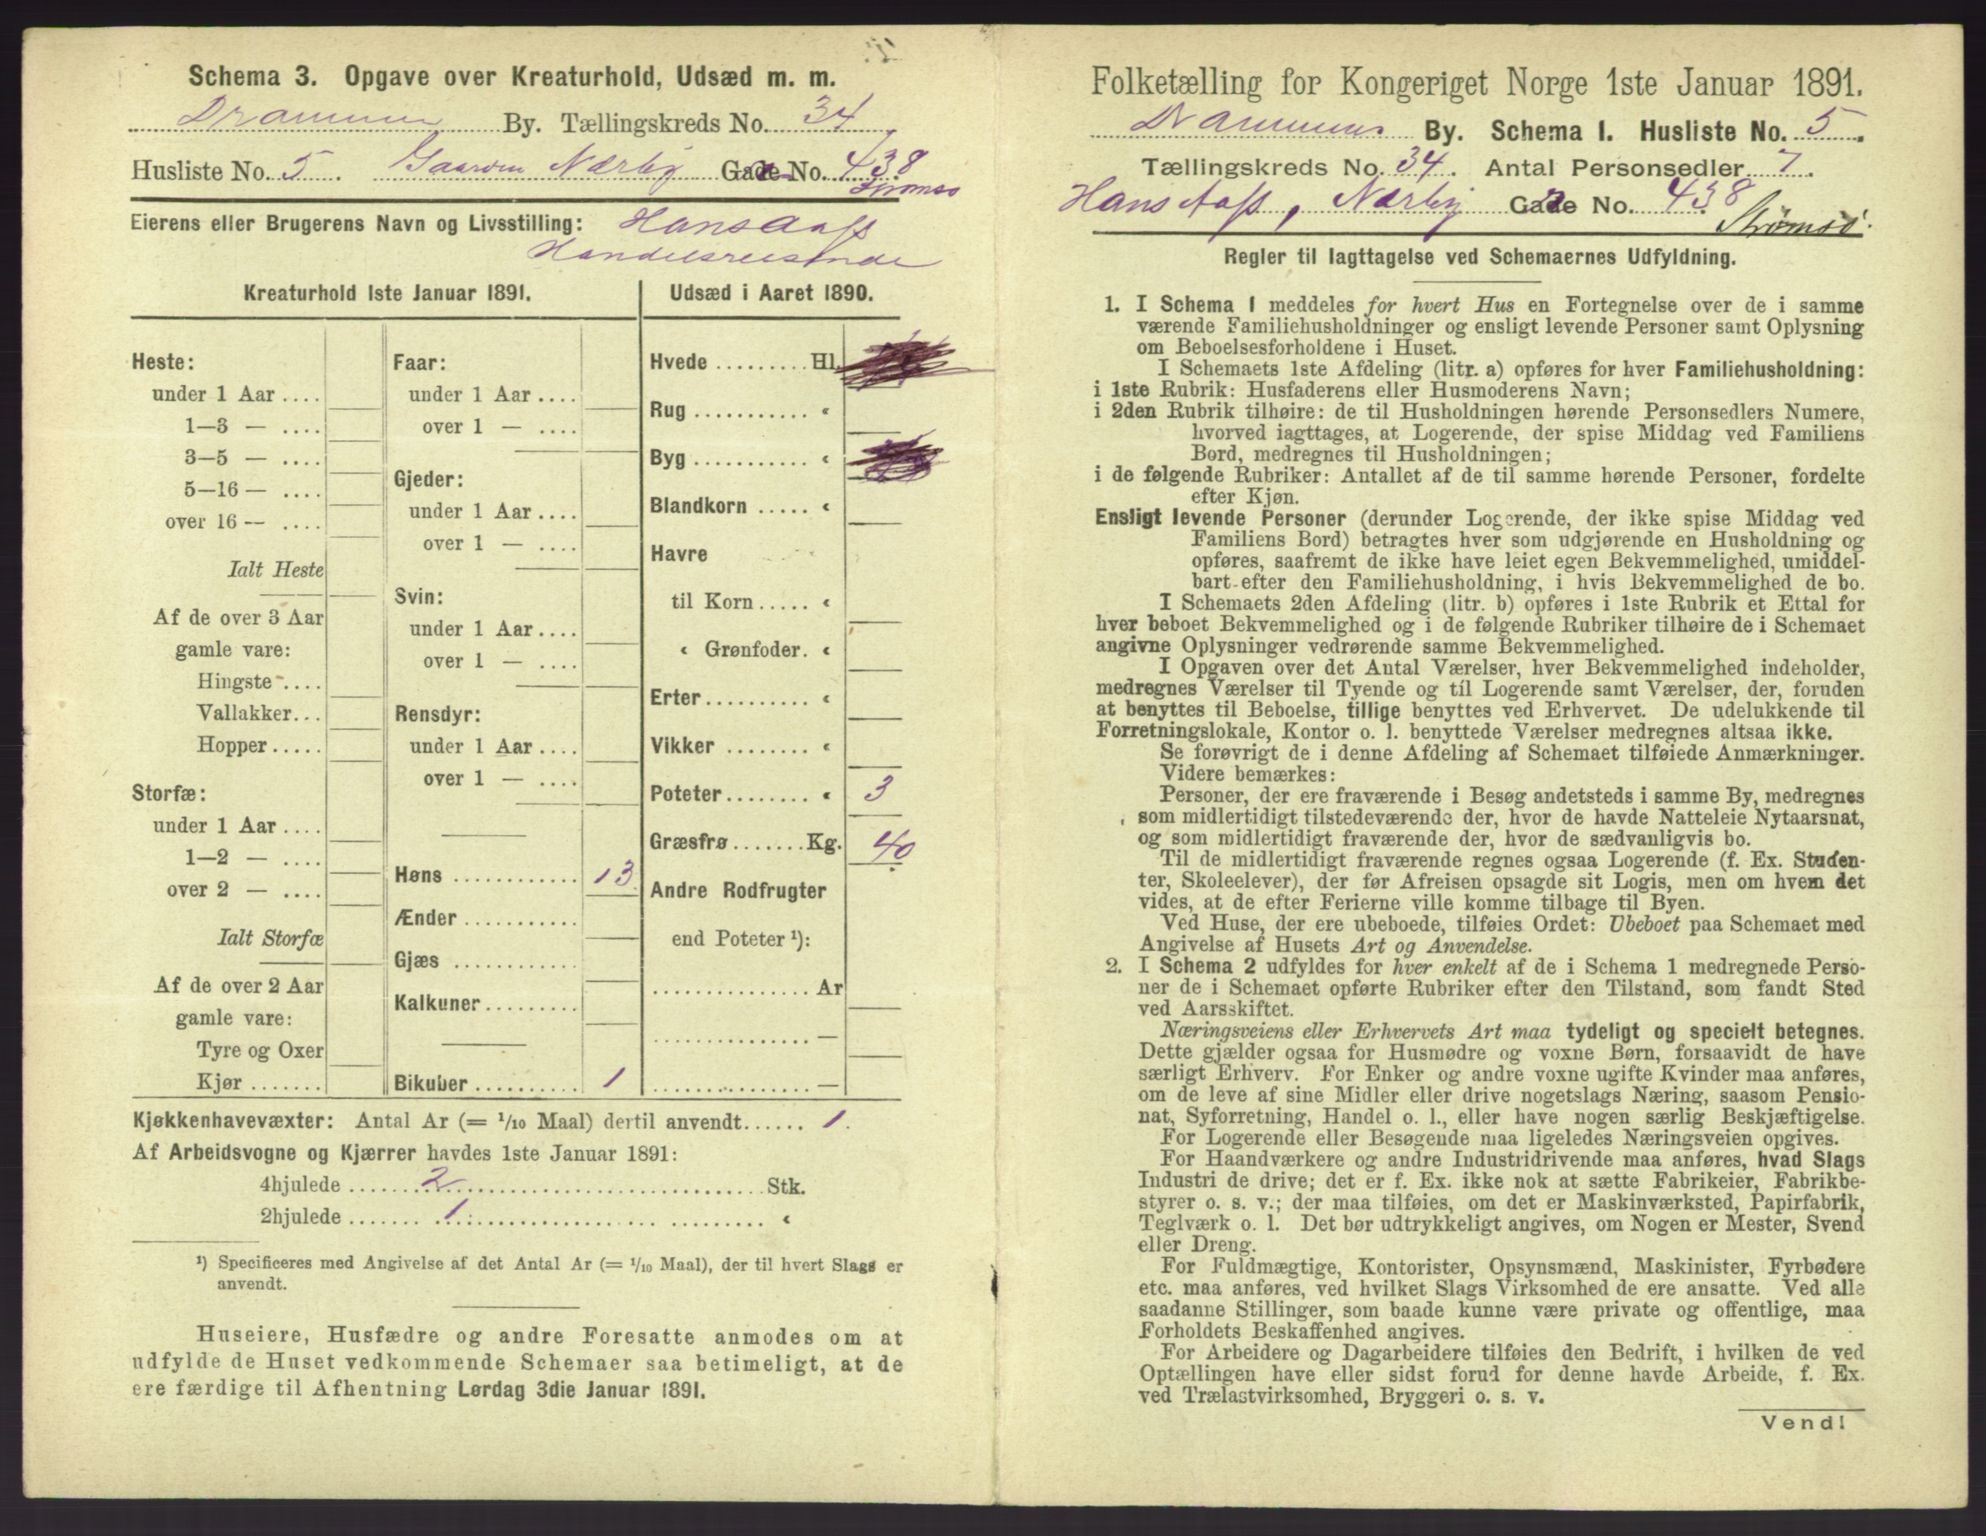 Schema 3. Opgave over Kreaturhold, Udsæd m. m.
Drammen By. Tællingskreds No. 34
Husliste No. 5. Gaarden Nærby Gade No. 438
Strømsø
Eierens eller Brugerens Navn og Livsstilling: Hans Aass
Handelsreisende
Kreaturhold 1ste Januar 1891.
Heste:
under 1 Aar ....
1—3 — ....
3—5 — ....
5—16 — ....
over 16 — ....
Ialt Heste
Af de over 3 Aar
gamle vare:
Hingste ....
Vallakker...
Hopper .....
Storfæ:
under 1 Aar ....
1—2 — ....
over 2 — ....
Ialt Storfæ
Af de over 2 Aar
gamle vare:
Tyre og Oxer
Kjør .......
Faar:
under 1 Aar ....
over 1 — ....
Gjeder:
under 1 Aar ....
over 1 — ....
Svin:
under 1 Aar ....
over 1 — ....
Rensdyr:
under 1 Aar ....
over 1 — ....
Høns ............ 13
Ænder ...........
Gjæs ............
Kalkuner .........
Bikuber .......... 1
Udsæd i Aaret 1890.
Hvede ......... Hl.
Rug ........... «
Byg ........... «
Blandkorn ..... «
Havre
til Korn ..... «
« Grønfoder. «
Erter .......... «
Vikker ........ «
Poteter ........ « 3
Græsfrø ....... Kg. 40
Andre Rodfrugter
end Poteter ¹):
................ Ar
................ —
................ —
Kjøkkenhavevæxter: Antal Ar (= 1/10 Maal) dertil anvendt...... 1.
Af Arbeidsvogne og Kjærrer havdes 1ste Januar 1891:
4hjulede ....... 2 ....... Stk.
2hjulede ....... 1 ....... «
¹) Specificeres med Angivelse af det Antal Ar (= 1/10 Maal), der til hvert Slags er
anvendt.
Huseiere, Husfædre og andre Foresatte anmodes om at
udfylde de Huset vedkommende Schemaer saa betimeligt, at de
ere færdige til Afhentning Lørdag 3die Januar 1891.
Folketælling for Kongeriget Norge 1ste Januar 1891.
Drammens By. Schema 1. Husliste No. 5.
Tællingskreds No. 34. Antal Personsedler 7.
Hans Aass, Nærby Gade No. 438
Strømsø.
Regler til Iagttagelse ved Schemaernes Udfyldning.
1. I Schema 1 meddeles for hvert Hus en Fortegnelse over de i samme
værende Familiehusholdninger og ensligt levende Personer samt Oplysning
om Beboelsesforholdene i Huset.
I Schemaets 1ste Afdeling (litr. a) opføres for hver Familiehusholdning:
i 1ste Rubrik: Husfaderens eller Husmoderens Navn;
i 2den Rubrik tilhøire: de til Husholdningen hørende Personsedlers Numere,
hvorved iagttages, at Logerende, der spise Middag ved Familiens
Bord, medregnes til Husholdningen;
i de følgende Rubriker: Antallet af de til samme hørende Personer, fordelte
efter Kjøn.
Ensligt levende Personer (derunder Logerende, der ikke spise Middag ved
Familiens Bord) betragtes hver som udgjørende en Husholdning og
opføres, saafremt de ikke have leiet egen Bekvemmelighed, umiddel-
bart efter den Familiehusholdning, i hvis Bekvemmelighed de bo.
I Schemaets 2den Afdeling (litr. b) opføres i 1ste Rubrik et Ettal for
hver beboet Bekvemmelighed og i de følgende Rubriker tilhøire de i Schemaet
angivne Oplysninger vedrørende samme Bekvemmelighed.
I Opgaven over det Antal Værelser, hver Bekvemmelighed indeholder,
medregnes Værelser til Tyende og til Logerende samt Værelser, der, foruden
at benyttes til Beboelse, tillige benyttes ved Erhvervet. De udelukkende til
Forretningslokale, Kontor o. l. benyttede Værelser medregnes altsaa ikke.
Se forøvrigt de i denne Afdeling af Schemaet tilføiede Anmærkninger.
Videre bemærkes:
Personer, der ere fraværende i Besøg andetsteds i samme By, medregnes
som midlertidigt tilstedeværende der, hvor de havde Natteleie Nytaarsnat,
og som midlertidigt fraværende der, hvor de sædvanligvis bo.
Til de midlertidigt fraværende regnes ogsaa Logerende (f. Ex. Studen-
ter, Skoleelever), der før Afreisen opsagde sit Logis, men om hvem det
vides, at de efter Ferierne ville komme tilbage til Byen.
Ved Huse, der ere ubeboede, tilføies Ordet: Ubeboet paa Schemaet med
Angivelse af Husets Art og Anvendelse.
2. I Schema 2 udfyldes for hver enkelt af de i Schema 1 medregnede Perso-
ner de i Schemaet opførte Rubriker efter den Tilstand, som fandt Sted
ved Aarsskiftet.
Næringsveiens eller Erhvervets Art maa tydeligt og specielt betegnes.
Dette gjælder ogsaa for Husmødre og voxne Børn, forsaavidt de have
særligt Erhverv. For Enker og andre voxne ugifte Kvinder maa anføres,
om de leve af sine Midler eller drive nogetslags Næring, saasom Pensio-
nat, Syforretning, Handel o. l., eller have nogen særlig Beskjæftigelse.
For Logerende eller Besøgende maa ligeledes Næringsveien opgives.
For Haandværkere og andre Industridrivende maa anføres, hvad Slags
Industri de drive; det er f. Ex. ikke nok at sætte Fabrikeier, Fabrikbe-
styrer o. s. v.; der maa tilføies, om det er Maskinværksted, Papirfabrik,
Teglværk o. l. Det bør udtrykkeligt angives, om Nogen er Mester, Svend
eller Dreng.
For Fuldmægtige, Kontorister, Opsynsmænd, Maskinister, Fyrbødere
etc. maa anføres, ved hvilket Slags Virksomhed de ere ansatte. Ved alle
saadanne Stillinger, som baade kunne være private og offentlige, maa
Forholdets Beskaffenhed angives.
For Arbeidere og Dagarbeidere tilføies den Bedrift, i hvilken de ved
Optællingen have eller sidst forud for denne havde Arbeide, f. Ex.
ved Trælastvirksomhed, Bryggeri o. s. v.
Vend!